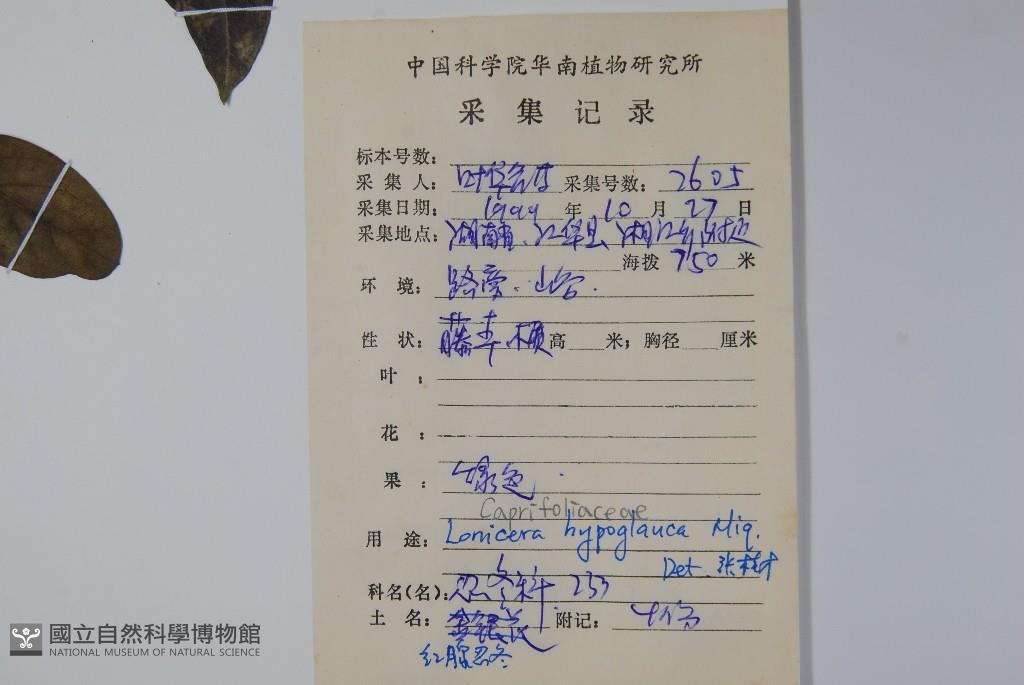 中国科学院华南植物研究所
采集记录
标本号数:
采集人: 叶华谷 采集号数: 2605
采集日期: 1999 年 10 月 27 日
采集地点: 湖南省、江华县 湘江乡附近
海拨 750 米
环境: 路旁、山谷.
性状: 藤本 高 米; 胸径 厘米
叶:
花:
果: 绿色.
Caprifoliaceae
用途: Lonicera hypoglauca Miq.
Det. 张
科名(名): 忍冬科 233
土名: 金银花 附记: 十份
红腺忍冬
國立自然科學博物館
NATIONAL MUSEUM OF NATURAL SCIENCE